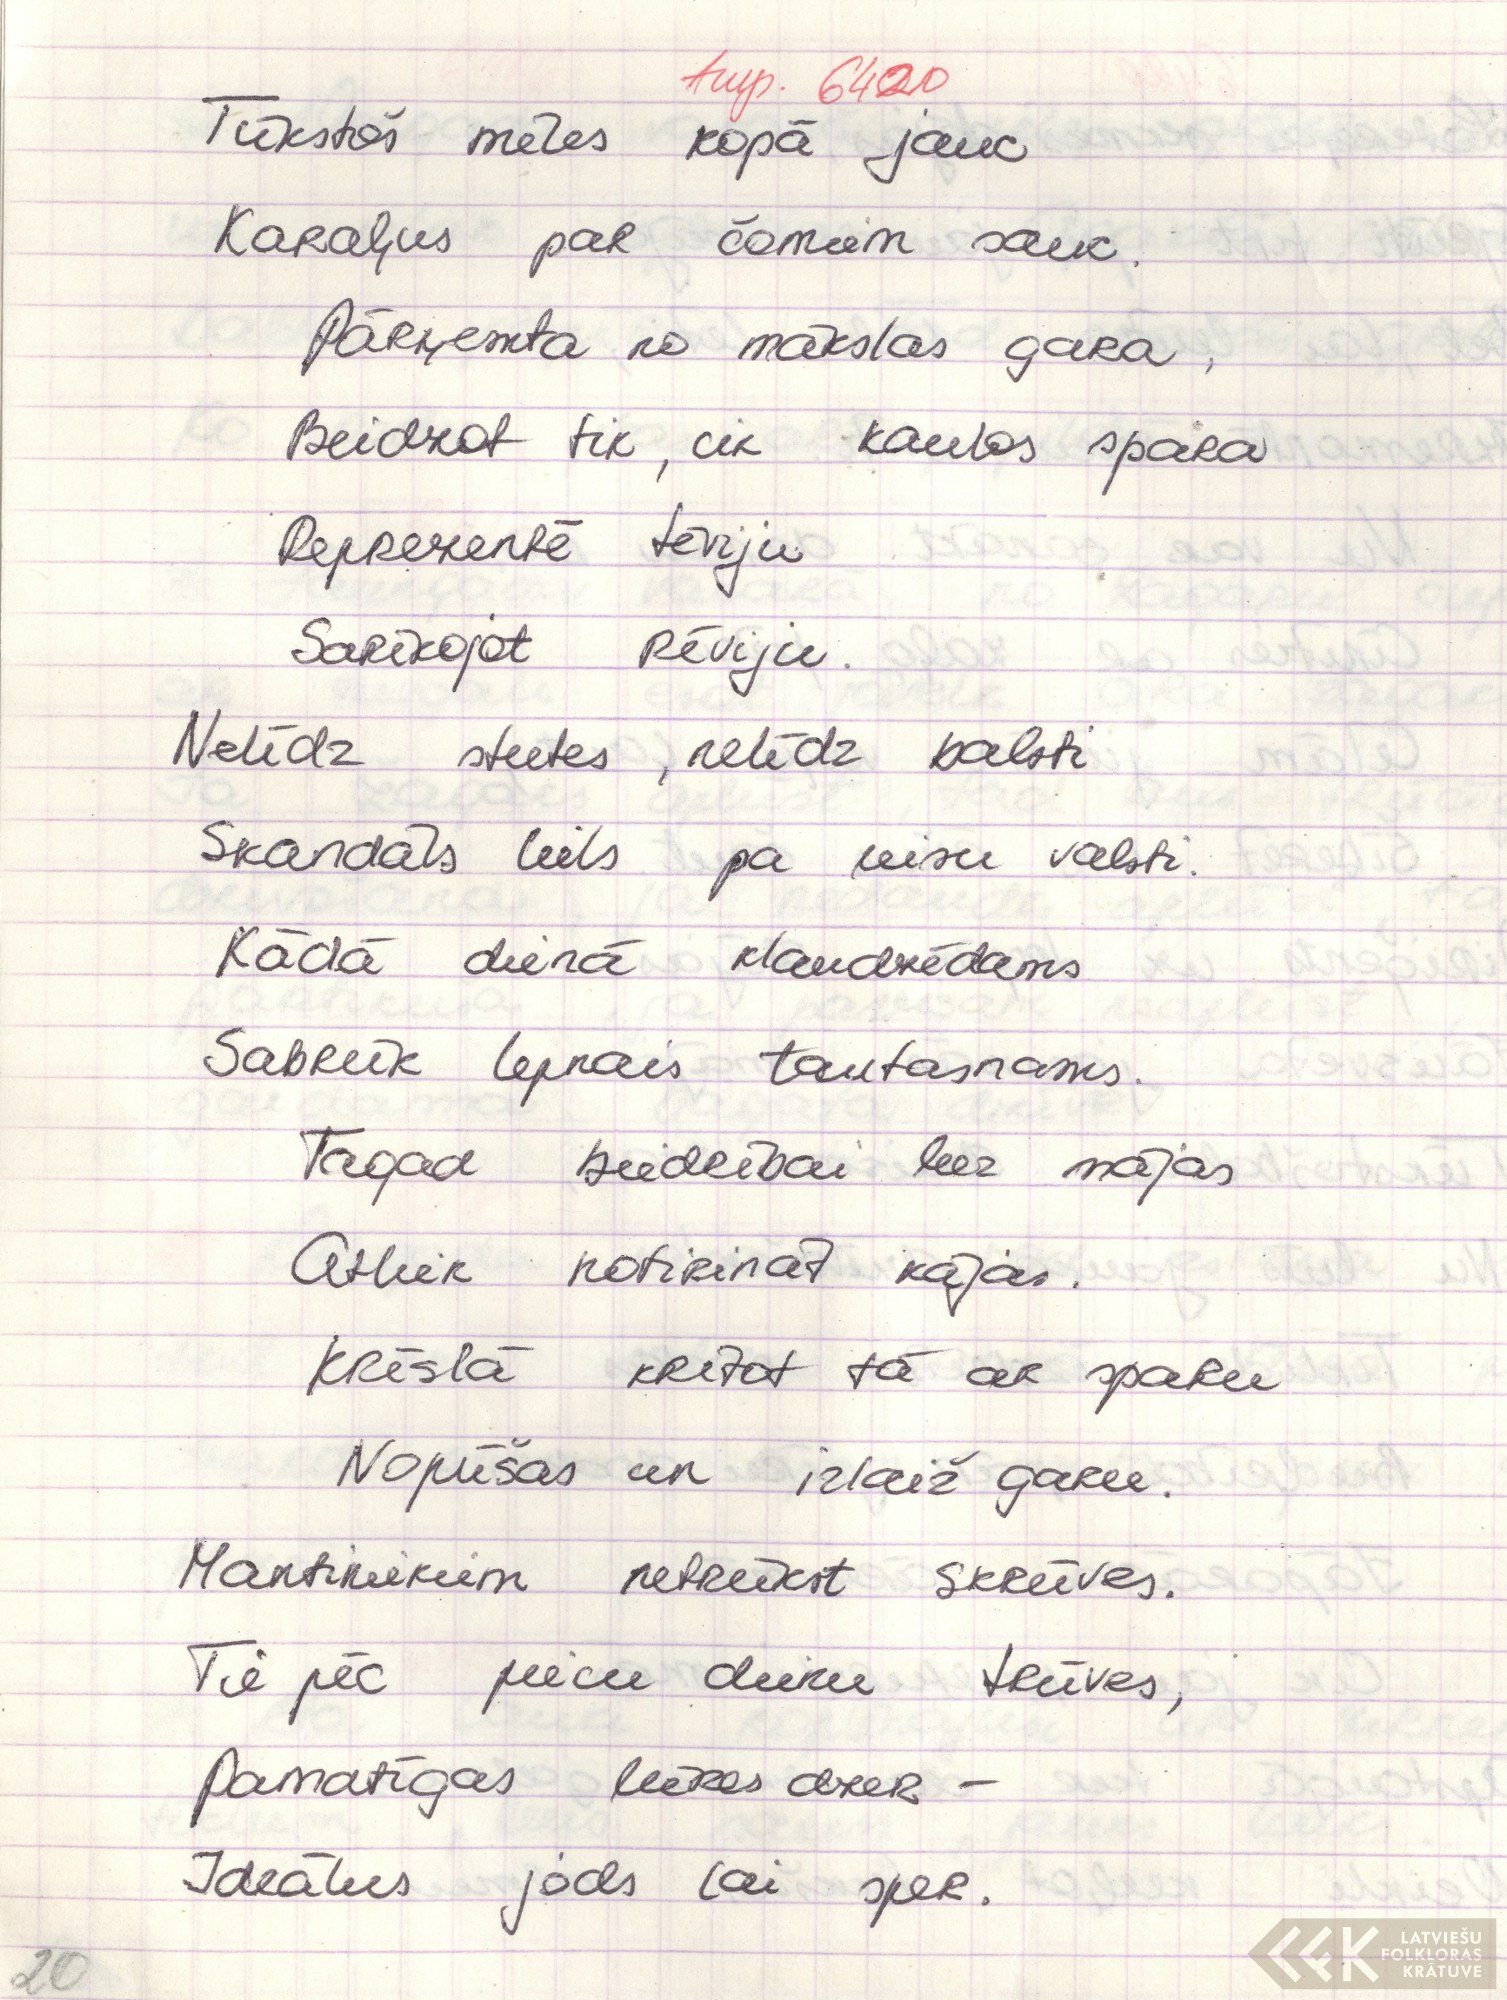 6420
Tūkstoš mēles kopā jauc
Karaļus par čomiem sauc.
Pārņemta no mākslas gara,
Beidzot tik, cik kaulos spara
Reprezentē tēviju
Sarīkojot rēviju.
Nelīdz stutes, nelīdz balsti
Skandāls liels pa visu valsti.
Kādā dienā klaudzēdams
Sabrūk lepnais tautasnams.
Tagad biedrībai bez mājas
Atliek notirināt kājas.
Krēslā krītot tā ar sparu
Nopūšas un izlaiž garu.
Mantiniekiem netrūkst skrūves.
Tie pēc piecu dienu trūves,
Pamatīgas bēres dzer –
Ideālus jods lai sper.
20
LATVIEŠU
FOLKLORAS
KRĀTUVE